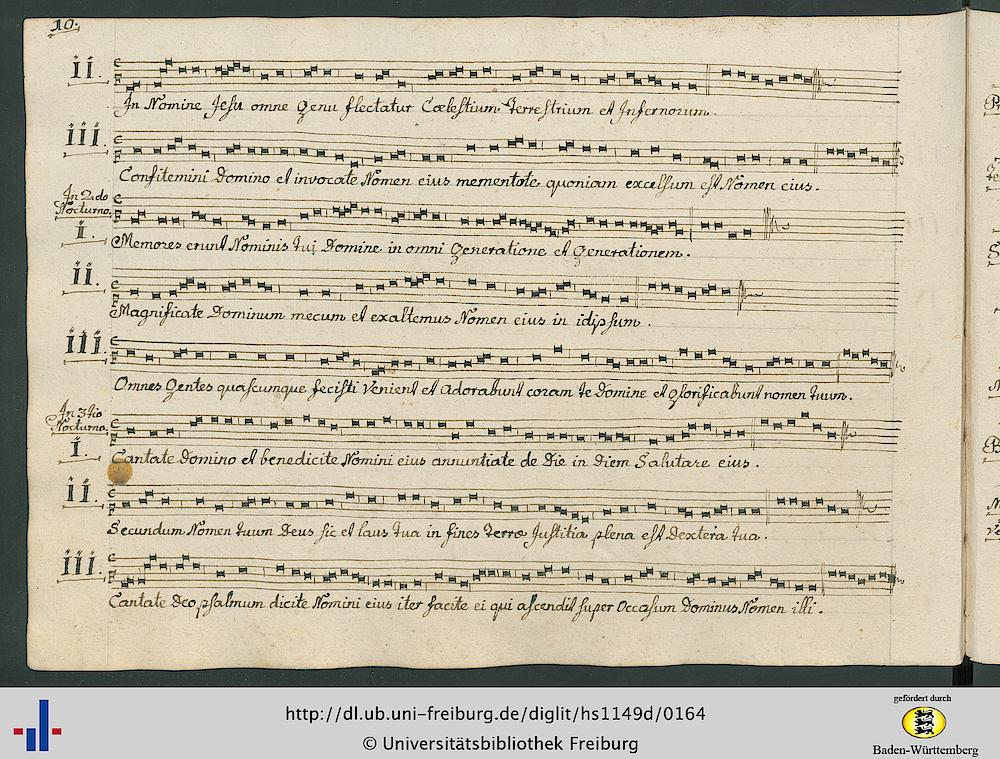 10.
ii.
In Nomine Jesu omne genu flectatur Cœlestium Terrestrium et Infernorum.
iii.
Confitemini Domino et invocate Nomen eius mementote quoniam excelsum est Nomen eius.
In 2.do
Nocturno.
I.
Memores erunt Nominis tui Domine in omni Generatione et Generationem.
ii.
Magnificate Dominum mecum et exaltemus Nomen eius in idipsum.
iii.
Omnes Gentes quascunque fecisti venient et Adorabunt coram te Domine et glorificabunt nomen tuum.
In 3tio
Nocturno.
I.
Cantate Domino et benedicite Nomini eius annuntiate de Die in Diem Salutare eius.
ii.
Secundum Nomen tuum Deus sic et laus tua in fines terræ Justitia plena est Dextera tua.
iii.
Cantate Deo psalmum dicite Nomini eius iter facite ei qui ascendit super Occasum Dominus Nomen illi.
http://dl.ub.uni-freiburg.de/diglit/hs1149d/0164
© Universitätsbibliothek Freiburg
gefördert durch
Baden-Württemberg